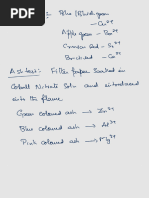 Blue/Bluish green
→ Cu²⁺
Apple green → Ba²⁺
Crimson Red → Sr²⁺
Brick Red → Ca²⁺
Ash test: Filter paper soaked in
Cobalt Nitrate Soln and introduced
into the flame
Green coloured ash → Zn²⁺
Blue coloured ash → Al³⁺
Pink coloured ash → Mg²⁺